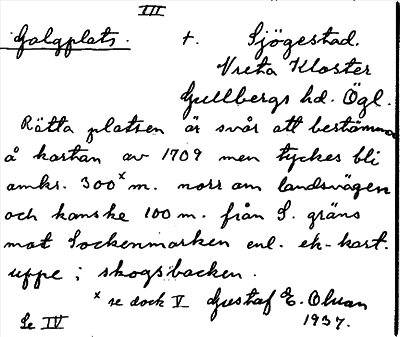 III
Galgplats. t. Sjögestad.
Vreta Kloster
Gullbergs hd. Ögl.
Rätta platsen är svår att bestämma
å kartan av 1709 men tyckes bli
omkr. 300x m. norr om landsvägen
och kanske 100 m. från S. gräns
mot Sockenmarken enl. ek-kart.
uppe i skogsbacken.
x se dock V Gustaf E. Olsson
Se IV 1937.